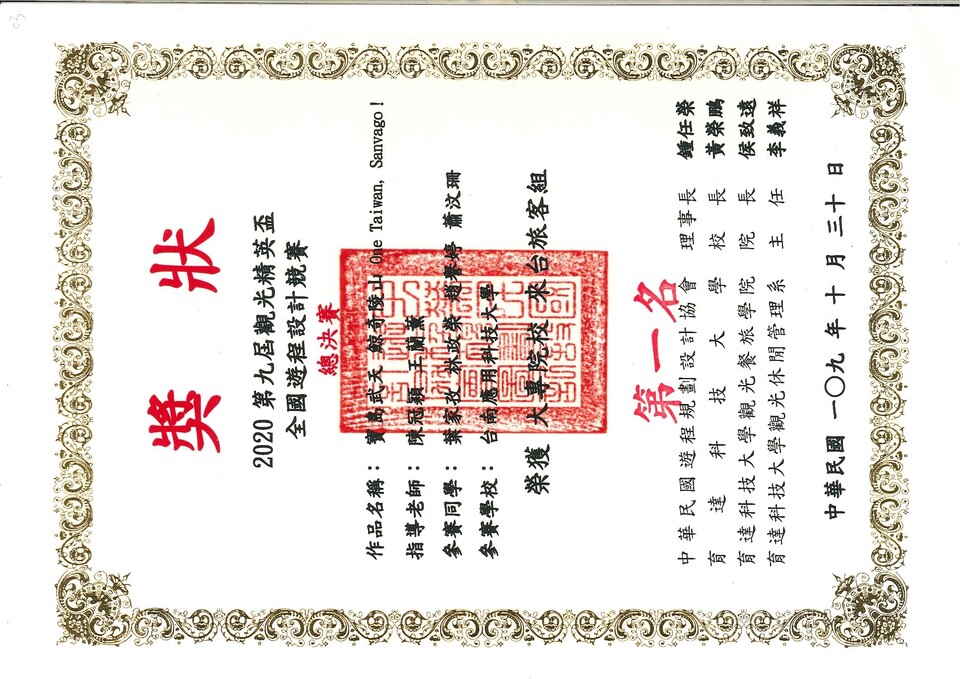 03
獎狀
2020 第九屆觀光精英盃
全國遊程設計競賽
總決賽
作品名稱：寶島武天 鯨奇陵山 One Taiwan, Sanvago!
指導老師：陳冠穎 王蘭薰
參賽同學：葉家孜 林政榮 趙睿婷 蕭汶珊
參賽學校：台南應用科技大學
榮獲 大專院校 來台旅客組
第一名
中華民國遊程規劃設計協會 理事長 鍾任榮
育達科技大學 校長 黃榮鵬
育達科技大學觀光餐旅學院 院長 侯致遠
育達科技大學觀光休閒管理系 主任 李義祥
中華民國一〇九年十月三十日